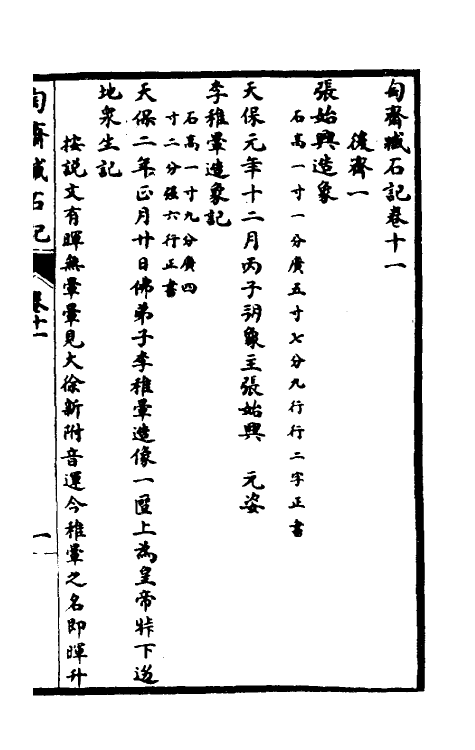 匋齋臧石記卷十一
後齊一
張始興造象
石高一寸一分廣五寸七分九行行二字正書
天保元年十二月丙子朔象主張始興　元姿
李稚暈造象記
石高一寸九分廣四
寸二分强六行正書
天保二年正月廿日佛弟子李稚暈造像一區上為皇帝㹀下迯
地衆生記
按說文有暉無暈暈見大徐新附音運今稚暈之名即暉升
匋齋臧石記
卷十一
一